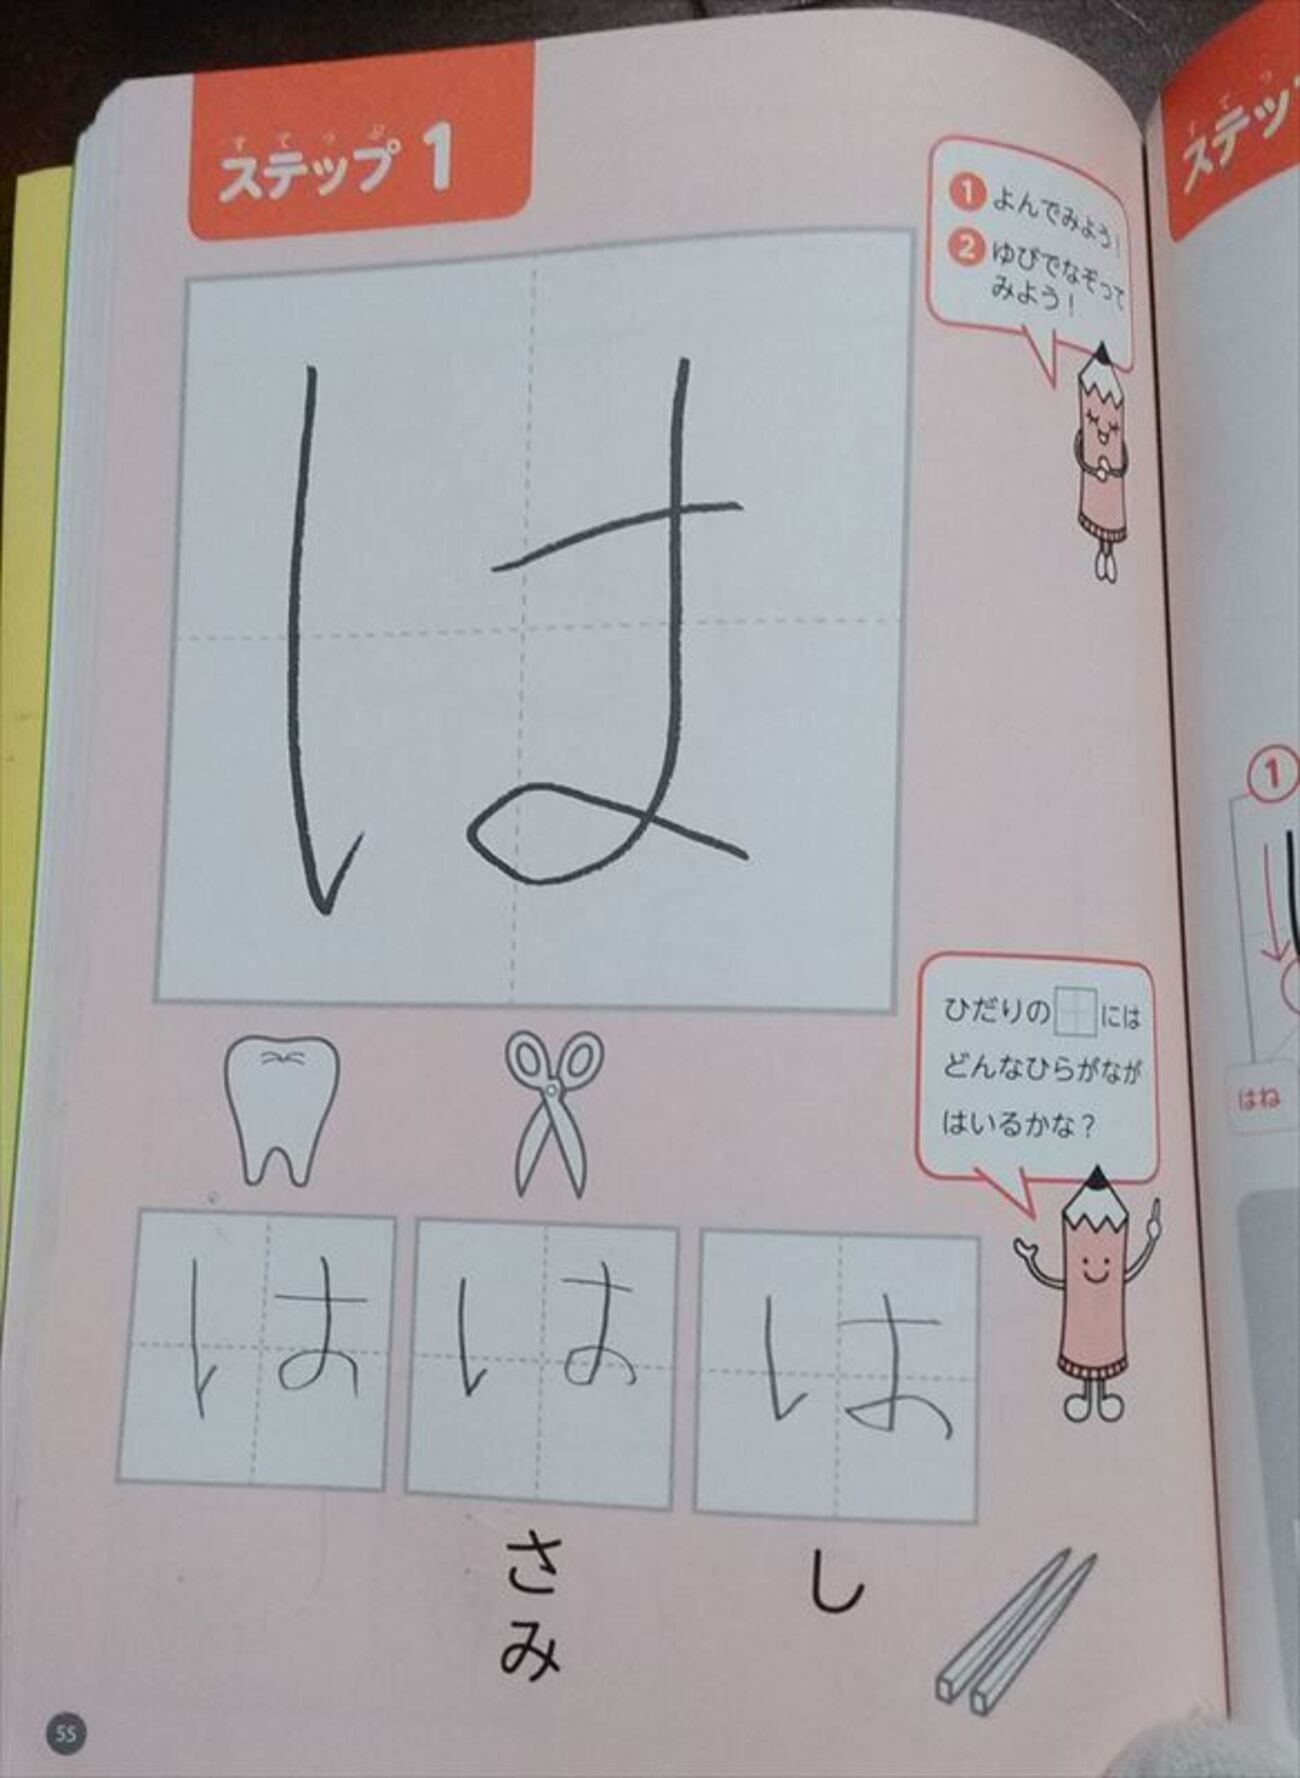 すてっぷ
ステップ 1
1 よんでみよう!
2 ゆびでなぞって
みよう!
は
ひだりの には
どんなひらがなが
はいるかな?
は
はさみ
はし
55
すてっ
ステッ
1
はね